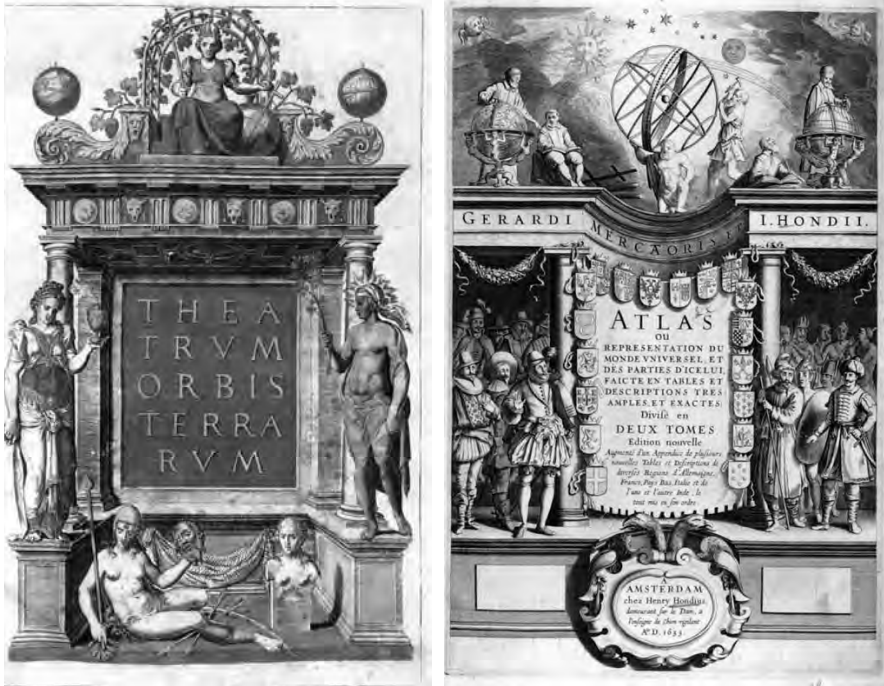 THEA
TRVM
ORBIS
TERRA
RVM
GERARDI MERCATORIS ET I. HONDII.
ATLAS
ou
REPRESENTATION DU
MONDE VNIVERSEL, ET
DES PARTIES D'ICELUI,
FAICTE EN TABLES ET
DESCRIPTIONS TRES
AMPLES, ET EXACTES:
Divisé en
DEUX TOMES
Edition nouvelle
Augmenté d'un Appendice de plusieurs
nouvelles Tables et Descriptions de
diverses Regions d'Allemaigne,
France, Pays Bas, Italie et de
l'une et l'autre Inde, le
tout mis en son ordre
A
AMSTERDAM
chez Henry Hondius,
demeurant sur le Dam, a
l'enseigne du Chien vigilant
Aº. D. 1633.